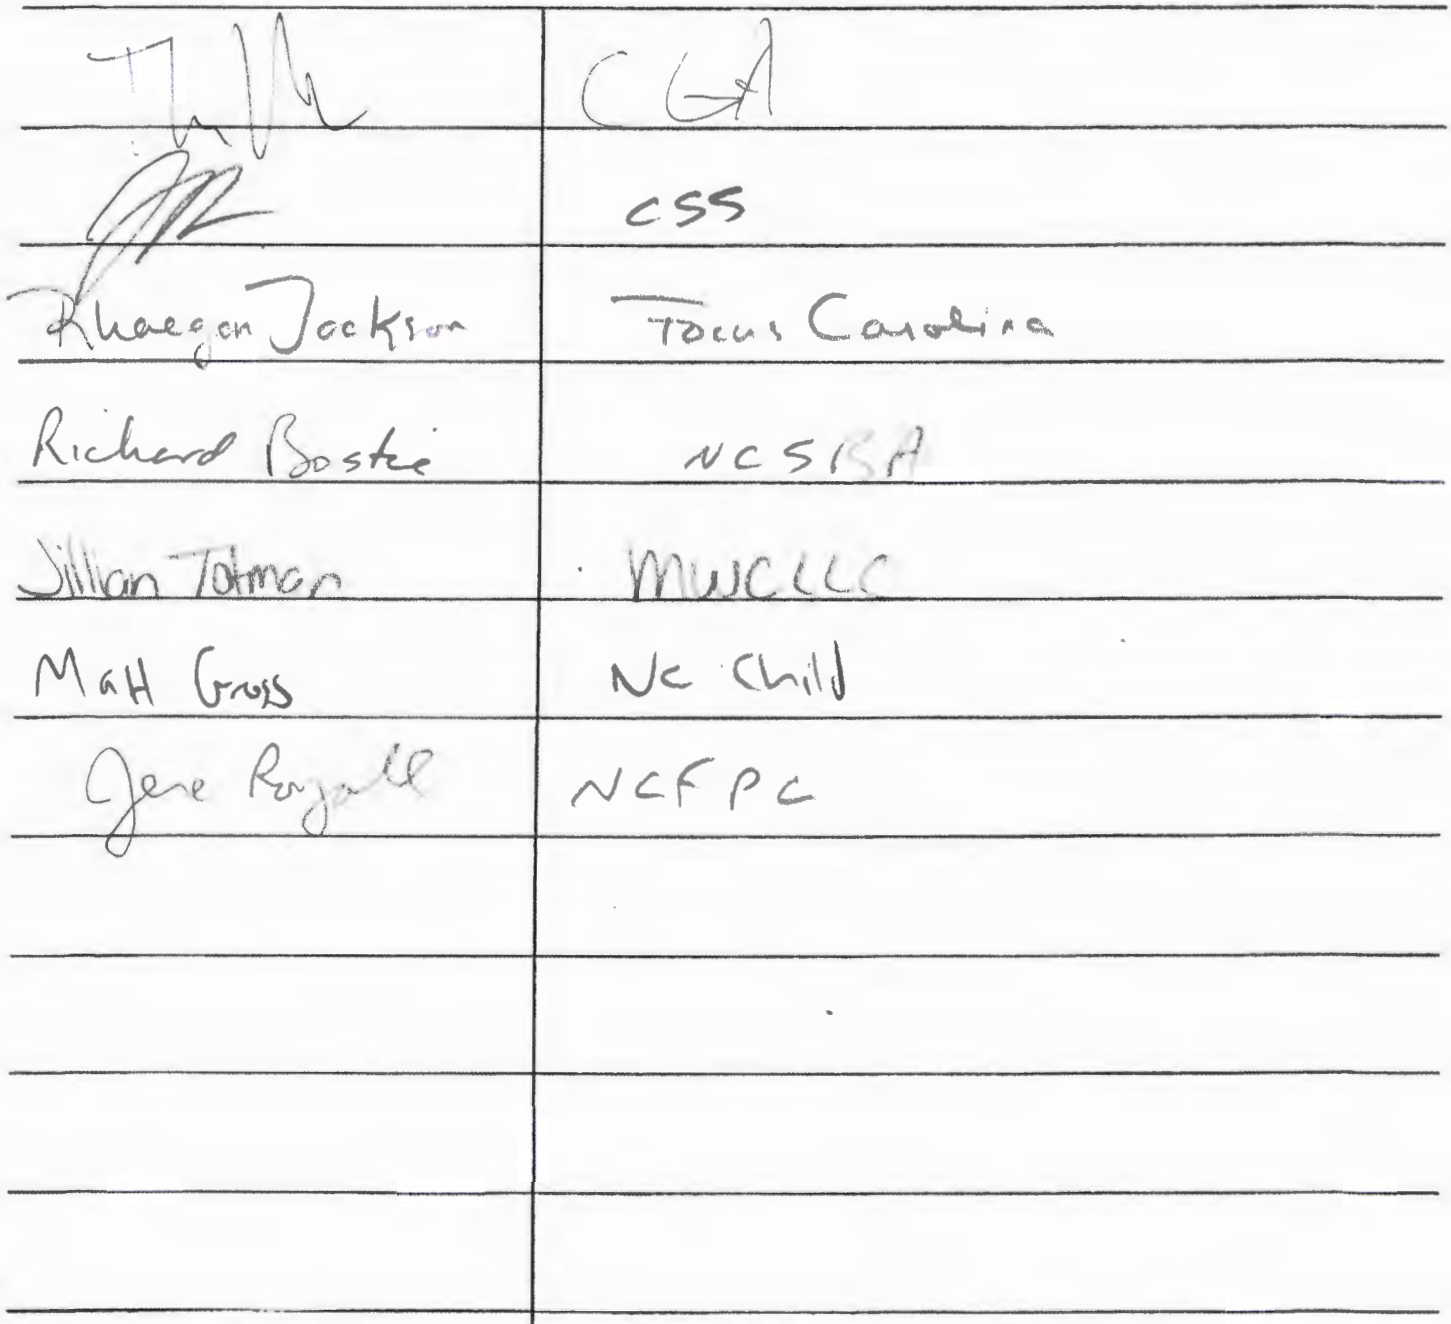 CGA
CSS
Rhaegan Jackson Focus Carolina
Richard Bostic NCSBA
Jillian Totman MWCLLC
Matt Gross NC Child
Jere Royall NCFPC